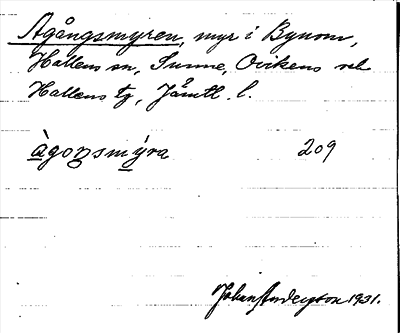 Agångsmyren, myr i Bynom,
Hallens sn, Sunne, Ovikens och
Hallens tg, Jämtl. l.
àgoŋsmýra 209
Johan Anderzson 1931.